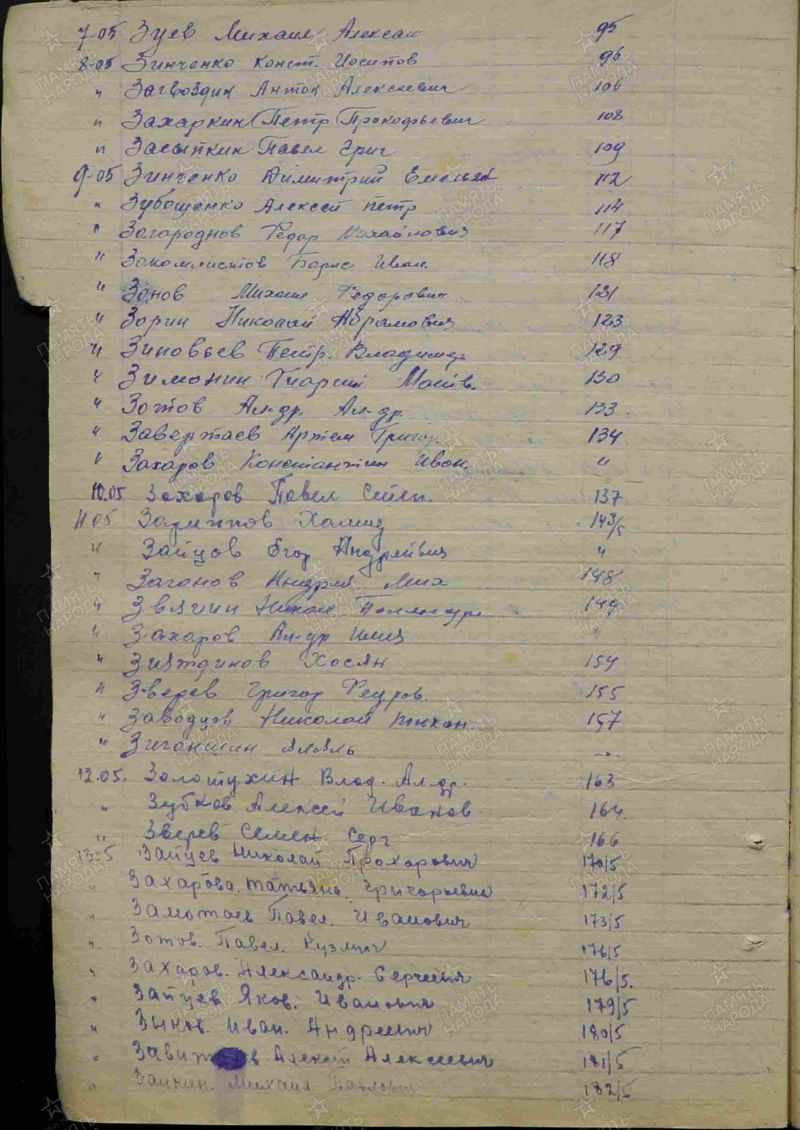 7-05 Зуев Михаил Алексан 95
8-05 Зинченко Конст. Иосипов 96
" Загвоздин Антон Алексеевич 106
" Захаркин Петр Прокофьевич 108
" Засыпкин Павел Григ 109
9-05 Зинченко Димитрий Емельян 112
" Зубошенко Алексей Петр 114
" Загороднов Федор Михайлович 117
" Закомлистов Барис Иван. 118
" Зонов Михаил Федорович 121
" Зорин Николай Абрамович 123
" Зиновьев Петр. Владимир 129
" Зимонин 130
" Зотов Ал-др. Ал-др. 133
" Завертаев Артем Григор. 134
" Захаров Константин Иван. "
10.05 Захаров Павел Степ. 137
11 05 Зариппов Хамид 143/5
" Зайцов Егор Андрейвич "
" Загонов Андрей Мих 148
" Звягин Никол 149
" Захаров Ал-др Илич "
" Зиятдинов Хосян 154
" Зверев Григор Федров. 155
" Заводцов Николай Тихон 157
" Зиганшин -"-
12.05. Золотухин Влад. Ал-др. 163
" Зубков Алексей Иванов 164.
" Зверев Семен Серг 166
13-5 Зайцев Николай Прохорович 170/5
" Захарова Татьяна Григорьевна 172/5
" Замотаев Павел. Иванович 173/5
" Зотов. Павел. Кузмич 176/5
" Захаров. Александр. Сергеевич 176/5.
" Зайцев Яков. Иванович 179/5
" Зыков. Иван. Андреевич 180/5
" Алексей Алексеевич 181/5
" Заикин. Михаил Павлович 182/5